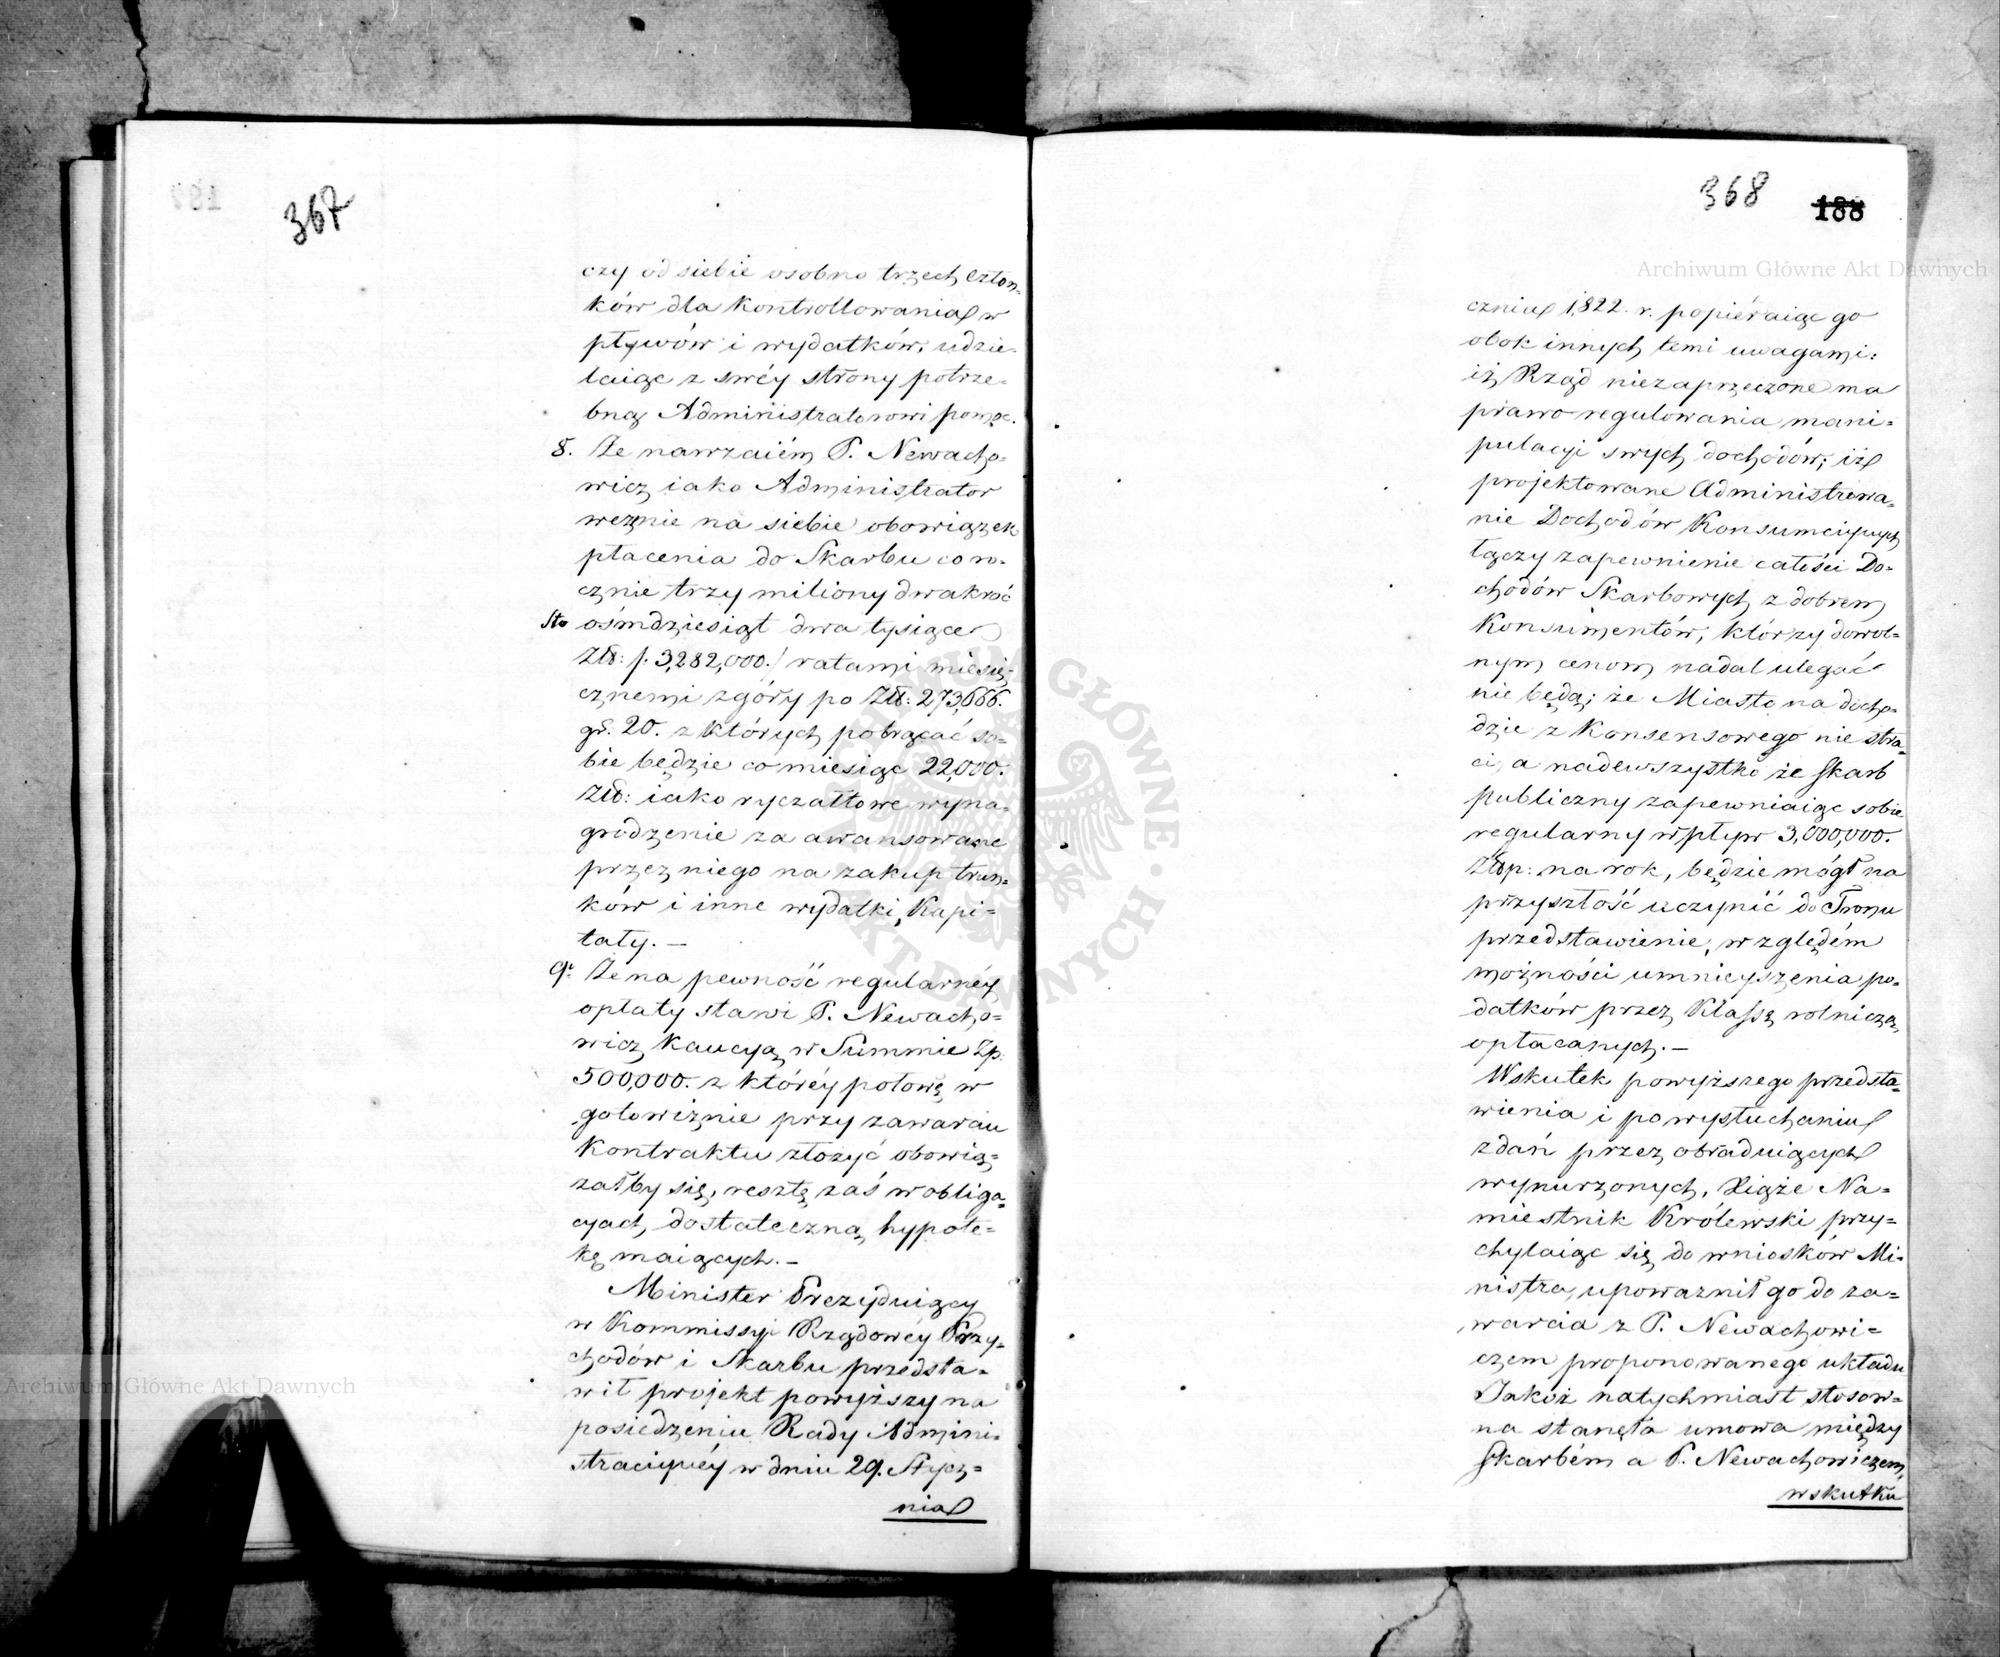 367
czy od siebie osobno trzech Człon=
ków dla Kontrollowania w
pływów i wydatków, udzie=
laiąc z swéy strony potrze=
bną Administratorowi pomoc.
8. Że nawzaiém P. Newacho=
wicz iako Administrator
weźmie na siebie obowiązek
płacenia do Skarbu co ro=
cznie trzy miliony dwakroć
sto ośmdziesiąt dwa tysiące
Złł: p. 3,282,000./ ratami miesię=
cznemi z góry po Złł: 273,666.
gr. 20. z których potrącać so=
bie będzie co miesiąc 22,000.
Złł: iako ryczałtowe wyna=
grodzenie za awansowane
przez niego na zakup trun=
ków i inne wydatki, Kapi=
tały. —
9. Że na pewność regularnéy
opłaty stawi P. Newacho=
wicz Kaucyą w Summie Zp:
500,000. z któréy połowę w
gotowiźnie przy zawarciu
Kontraktu złożyć obowią=
załby się, resztę zaś w obliga=
cyach, dostateczną hypote=
kę maiących. —
Minister Prezyduiący
w Kommissyi Rządowéy Przy=
chodów i Skarbu przedsta=
wił projekt powyższy na
posiedzeniu Rady Admini=
stracyinéy w dniu 29. Stycz=
nia
368
188
cznia 1822. r. popiéraiąc go
obok innych temi uwagami:
iż Rząd niezaprzeczone ma
prawo regulowania mani=
pulacyi swych dochodów; iż
projektowane Administrowa=
nie Dochodów Konsumcyinych
łączy zapewnienie całości Do=
chodów Skarbowych z dobrem
Konsumentów, którzy dowol=
nym cenom nadal ulegać
nie będą; że Miasto na docho=
dzie z Konsensowego nie stra=
ci, a nadewszystko że Skarb
publiczny zapewniaiąc sobie
regularny wpływ 3,000,000.
Złłp: na rok, będzie mógł na
przyszłość uczynić do Tronu
przedstawienie, względém
możności umnieyszenia po=
datków przez Klassę rolniczą
opłacanych. —
Wskutek powyższego przedsta=
wienia i po wysłuchaniu
zdań przez obraduiących
wynurzonych, Xiąże Na=
miestnik Królewski przy=
chylaiąc się do wniosków Mi=
nistra, upoważnił go do za=
warcia z P. Newachowi=
czem proponowanego układu
Jakoż natychmiast stosow=
na stanęła umowa między
Skarbém a P. Newachowiczem,
wskutku
Archiwum Główne Akt Dawnych
Archiwum Główne Akt Dawnych